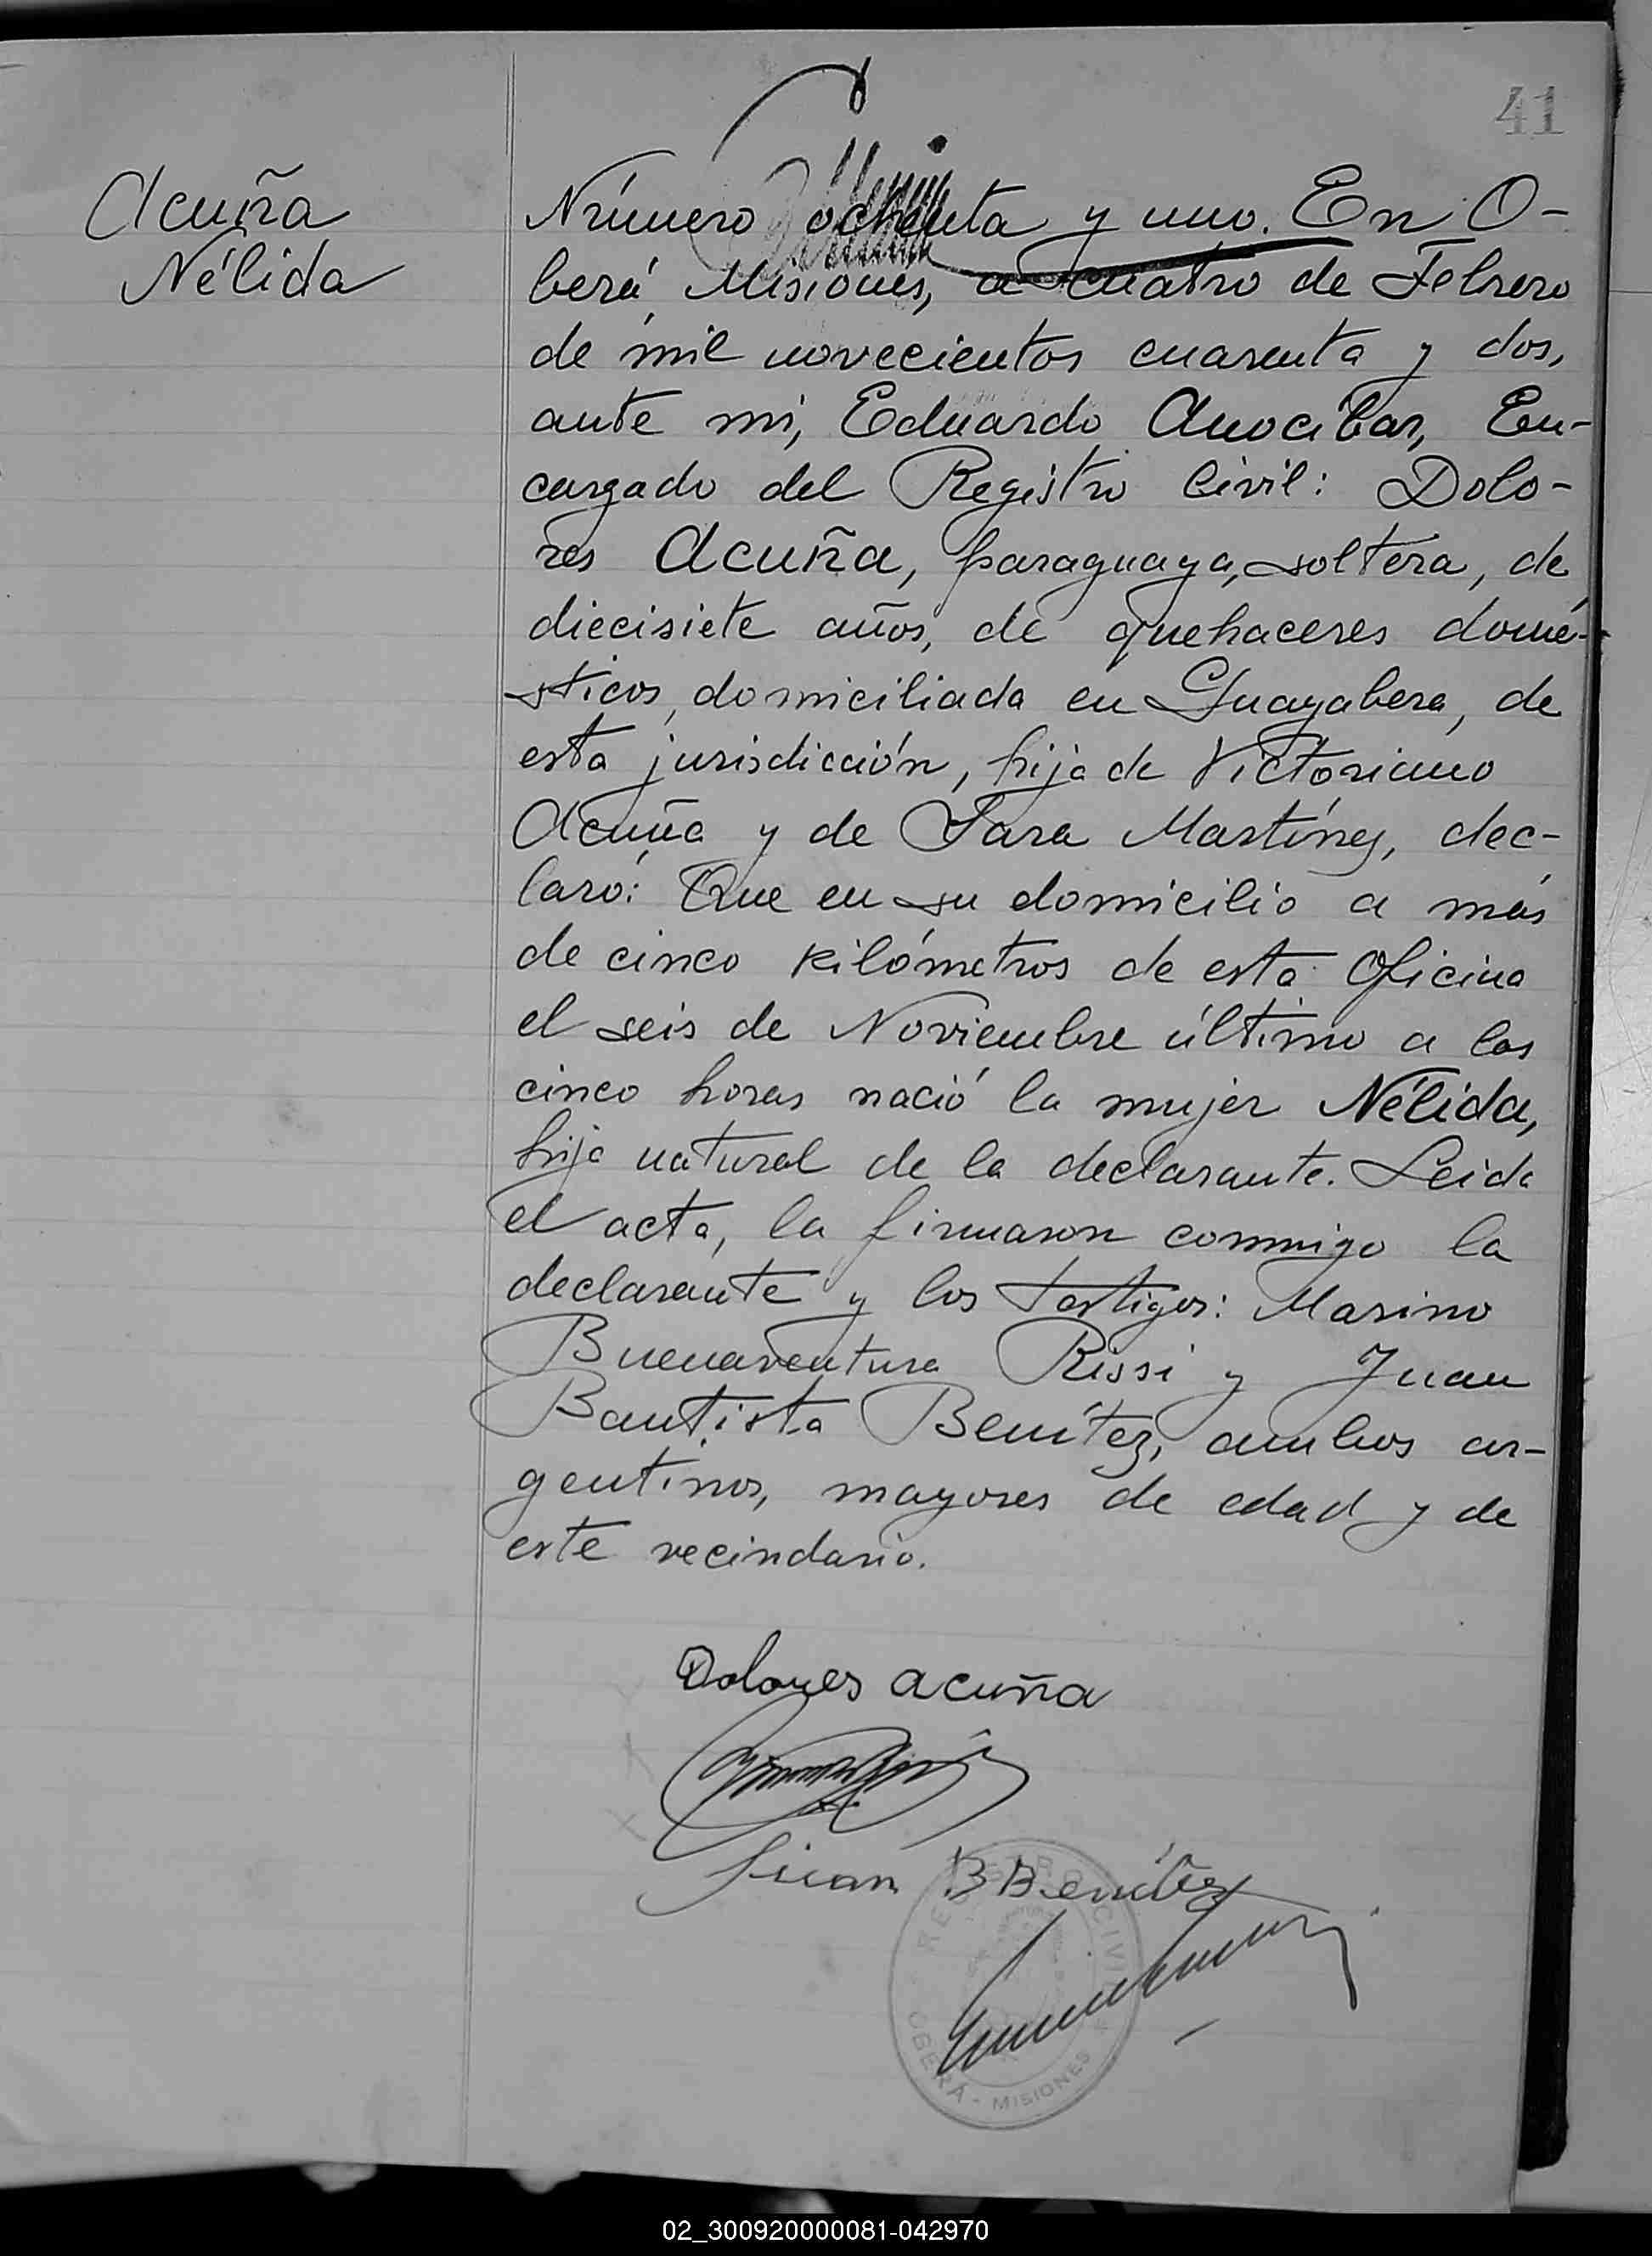 41
Acuña
Nélida
Número ochenta y uno. En O-
berá, Misiones, a cuatro de Febrero
de mil novecientos cuarenta y dos,
ante mi, Eduardo Anocibar, En-
cargado del Registro Civil: Dolo-
res Acuña, paraguaya, soltera, de
diecisiete años, de quehaceres domé-
sticos, domiciliada en Guayabera, de
esta jurisdicción, hija de Victoriano
Acuña y de Sara Martínez, dec-
laró: Que en su domicilio a más
de cinco kilómetros de esta Oficina
el seis de Noviembre último a las
cinco horas nació la mujer Nélida,
hija natural de la declarante. Leida
el acta, la firmaron conmigo la
declarante y los testigos: Marino
Buenaventura Rissi y Juan
Bautista Benítez, ambos ar-
gentinos, mayores de edad y de
este vecindario.
Dolores acuña
Juan B Benítez
REGISTRO CIVIL
OBERÁ - MISIONES
02_300920000081-042970